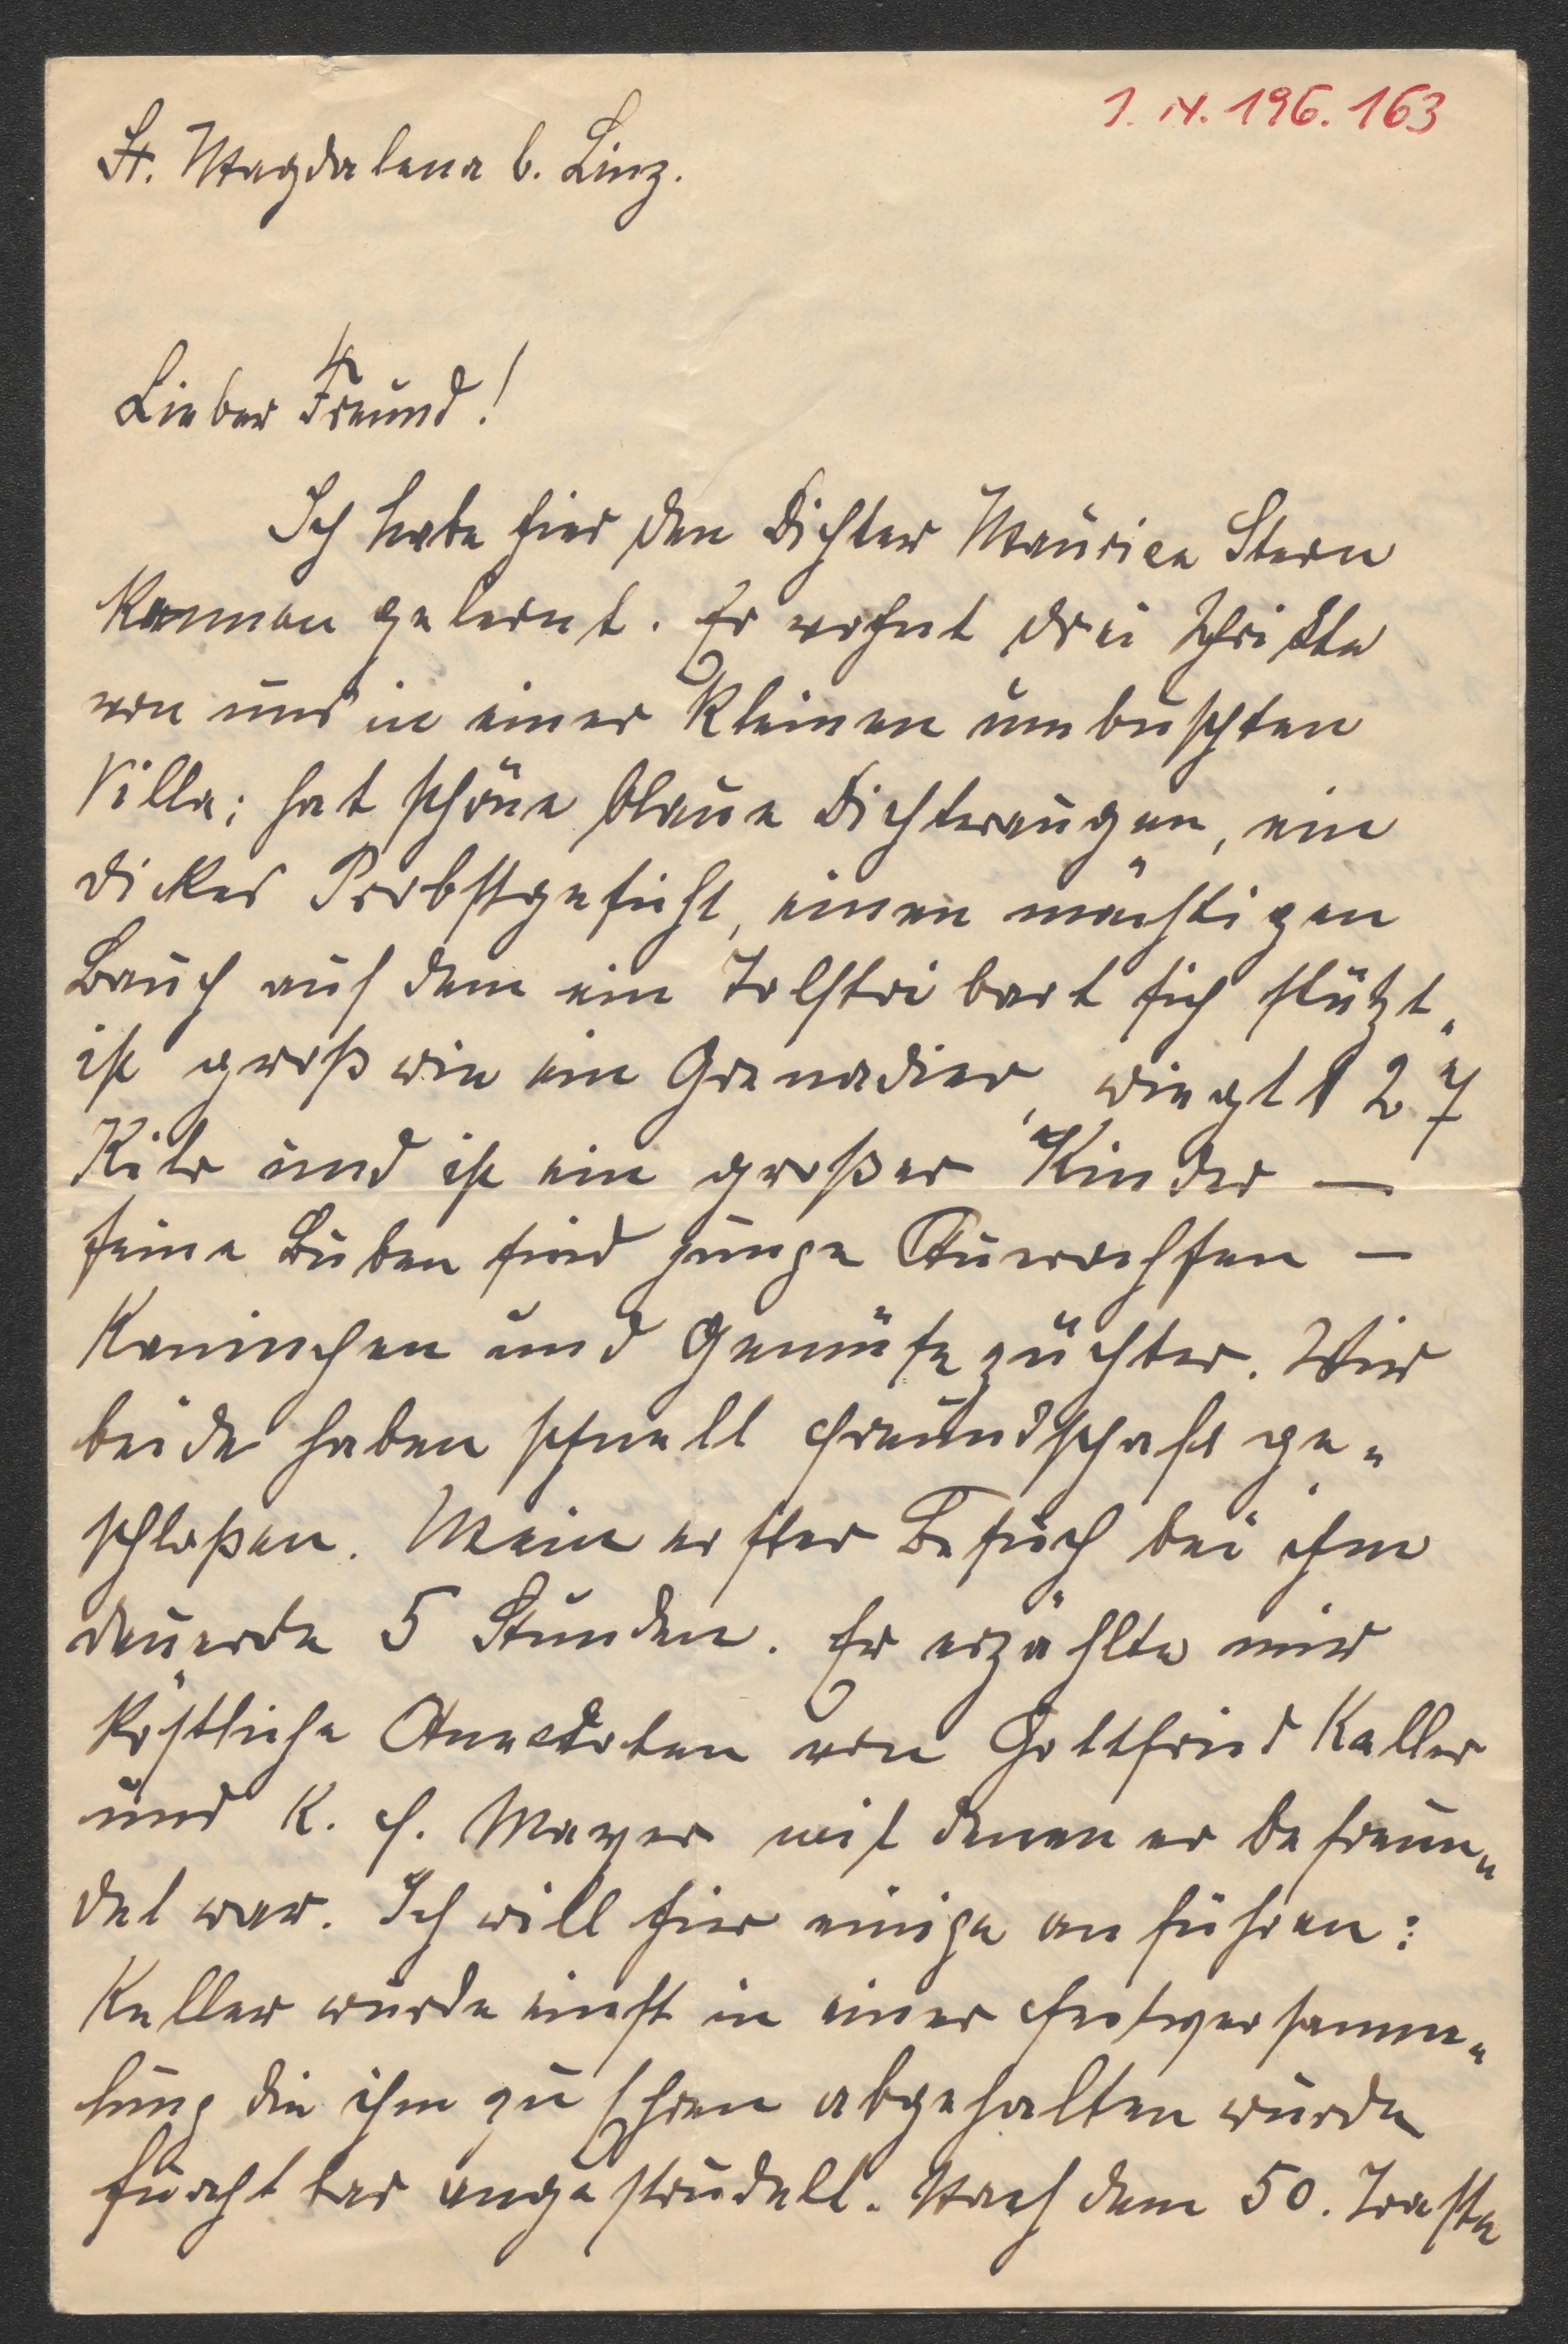 I. N. 196.163
St. Magdalena b. Linz.
Lieber Freund!
Ich habe hier den Dichter Maurice Stern
kennen gelernt. Er wohnt drei Schritte
von uns in einer kleinen umbuschten
Villa; hat schöne blaue Dichteraugen, ein
dickes Probstgesicht, einen mächtigen
Bauch auf dem ein Tolstoi bart sich stützt,
ist groß wie ein Grenadier, wiegt 127
Kilo und ist ein großer Kinder —
seine Buben sind junge Auerochsen —
Kaninchen und Gemüsezüchter. Wir
beide haben schnell Freundschaft ge-
schloßen. Mein erster Besuch bei ihm
dauerte 5 Stunden. Er erzählte mir
köstliche Anecdoten von Gottfried Keller
und K. F. Mayer mit denen er befreun-
det war. Ich will hier einige anführen:
Keller wurde einst in einer Festversamm-
lung die ihm zu Ehren abgehalten wurde
furchtbar angestrudelt. Nach dem 50. Toaste